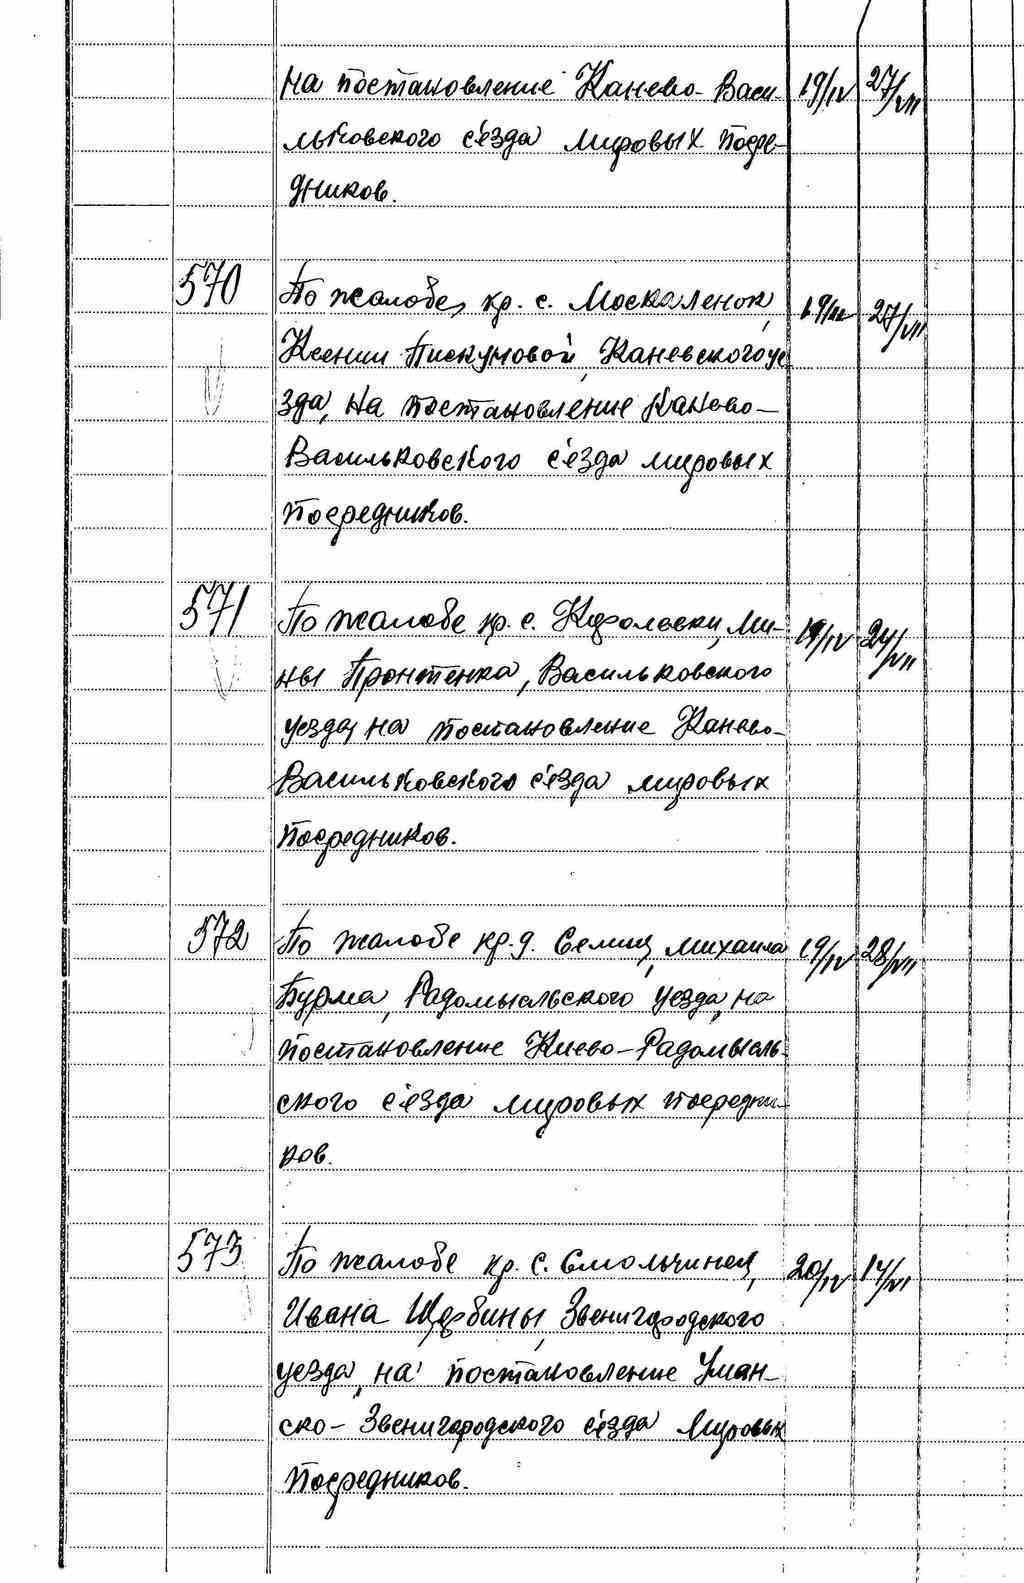 на постановление Канево-Васи- 19/IV 27/VII
льковского с'езда мировых посре-
дников.
570 По жалобе, кр. с. Москаленок, 27/VII
Ксении Пискуновой, Каневского уе
зда, на постановление Канево-
Васильковского с'езда мировых
посредников.
571 По жалобе кр. с. Ми- 19/IV 24/VII
ны Пронтенка, Васильковского
уезда, на постановление Канево-
Васильковского с'езда мировых
посредников.
572 По жалобе кр. д. Селищ, Михаила 19/IV 28/VII
Бурма, Радомысльского уезда, на
постановление Киево-Радомысль-
ского с'езда мировых посредни-
ков.
573 По жалобе кр. с. Смольчинец, 20/IV 14/VI
Ивана Щербины, Звенигородского
уезда, на постановление Уман-
ско-Звенигородского с'езда мировых
посредников.